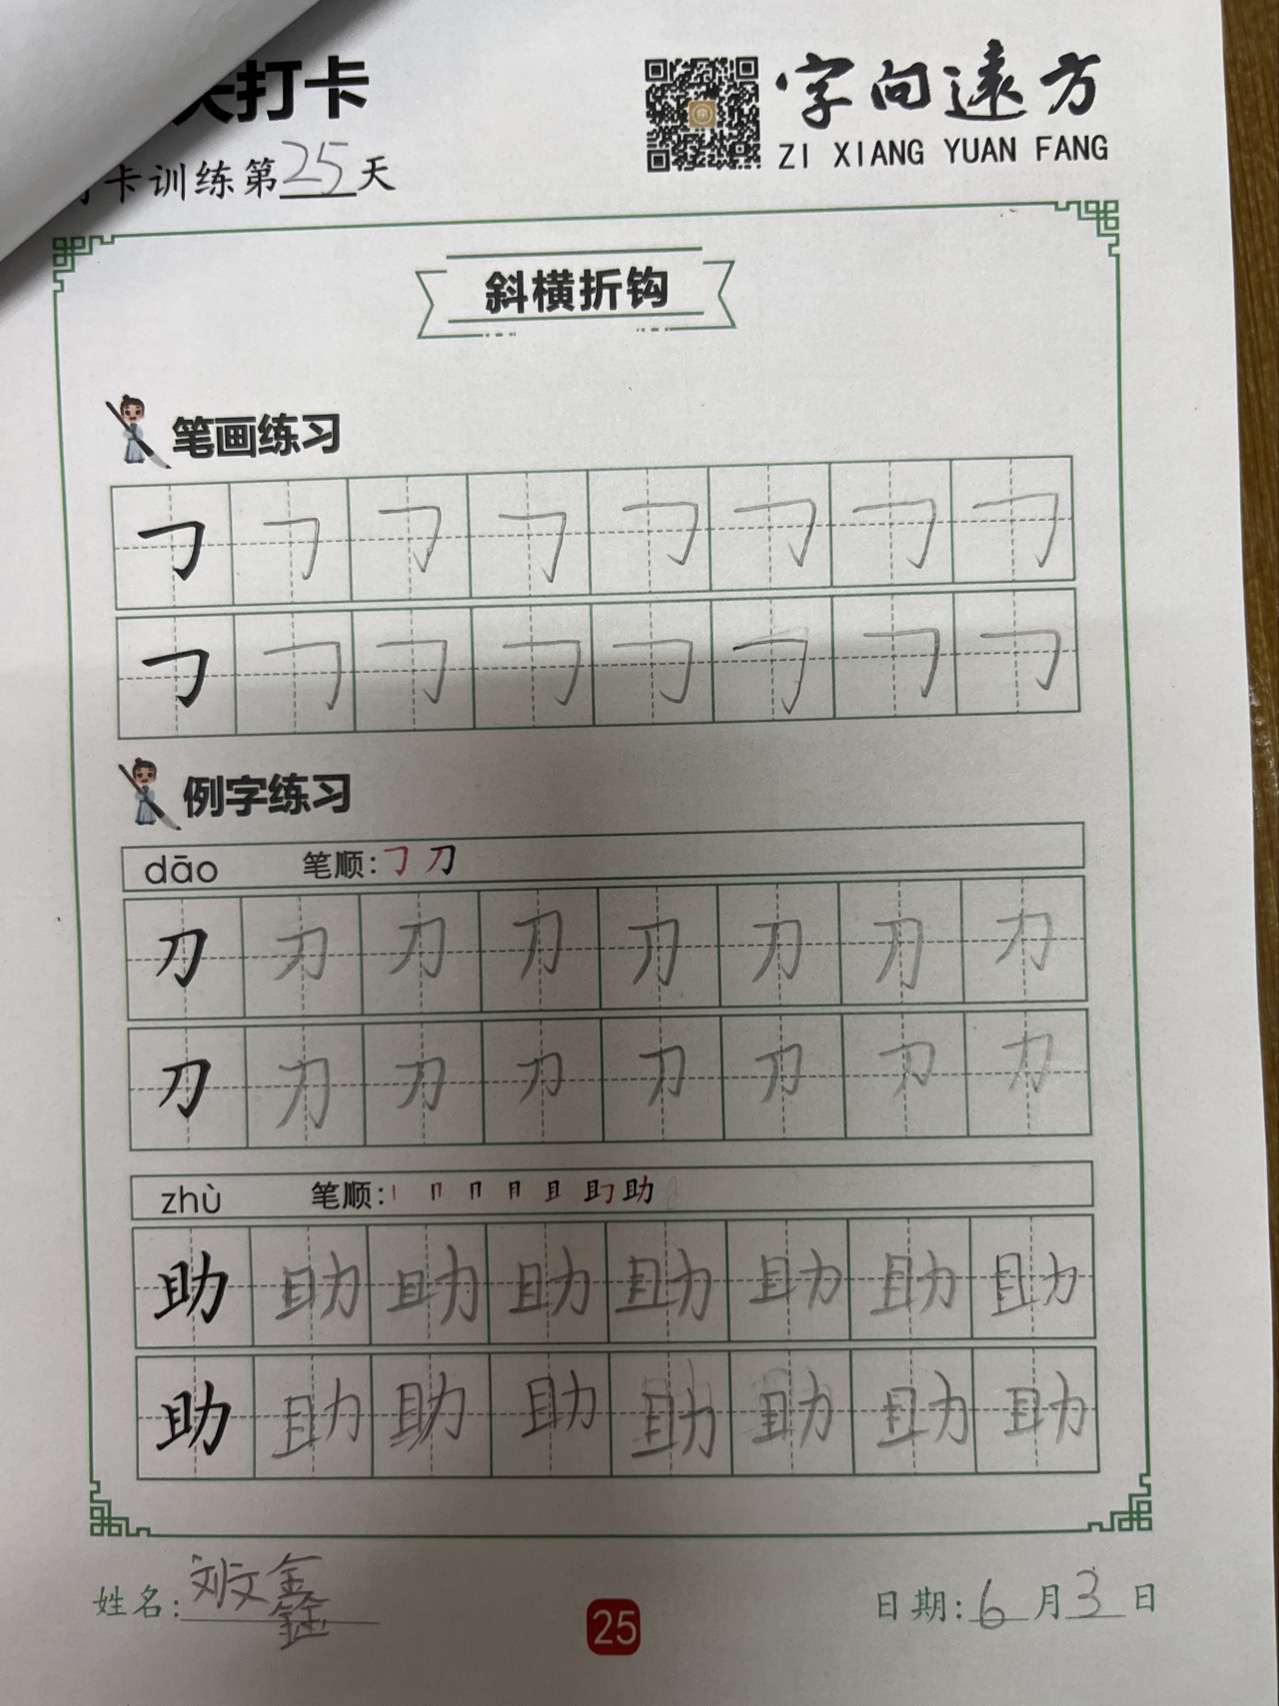 天打卡
字向遠方
ZI XIANG YUAN FANG
卡训练第25天
斜横折钩
笔画练习
例字练习
dāo 笔顺: 刀
刀 刀 刀 刀 刀 刀 刀 刀
刀 刀 刀 刀 刀 刀 刀 刀
zhù 笔顺: 助
助 助 助 助 助 助 助 助
助 助 助 助 助 助 助 助
姓名: 刘文鑫
25
日期: 6月3日